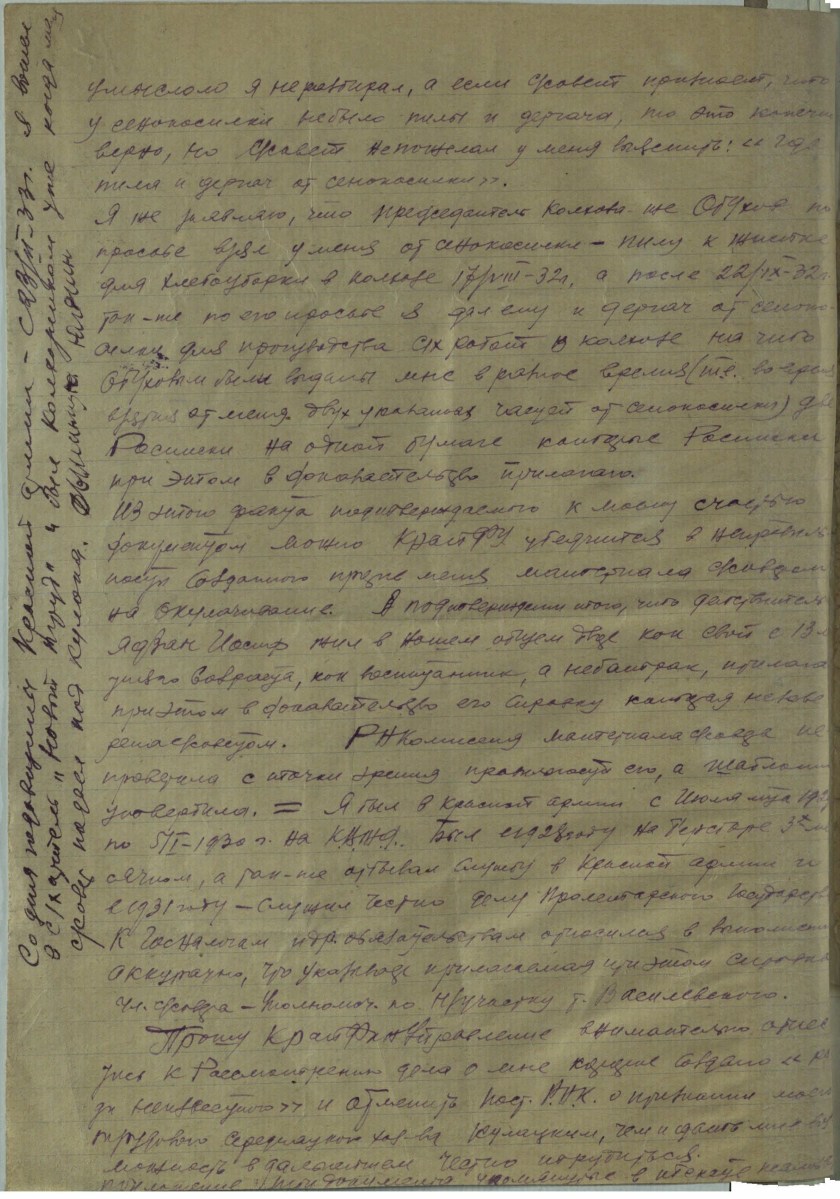 умыслом я неразбирал, а если с/совет признает, что
у сенокосилки небыло пилы и дергача, то это конечно
верно, но с/совет непожелал у меня выяснить: „где
пила и дергач от сенокосилки".
Я же заявляю, что председатель колхоза-же Обухов по
просьбе взял у меня от сенокосилки – пилу к жнейке
для хлебоуборки в колхозе 17/VIII-32г, а после 22/IX-32г
так-же по его просьбе я дал ему и дергач от сеноко-
силки для производства с/х работ в колхозе на что
Обуховым были выданы мне в разное время (т.е. во время
взятия от меня двух указанных частей от сенокосилки) две
Расписки на одной бумаге которые Расписки
при этом в доказательство прилагаю.
Из этого факта подтверждаемого к моему счастью
документом можно КрайФУ убедится в неправиль-
ности созданного против меня материала с/советом
на окулачивание. В подтверждении того, что действительно
Иосиф жил в нашем общем дворе как свой с 13
летнего возраста, как воспитанник, а небатрак, прилагаю
при этом в доказательство его справку которая незаве-
рена с/советом. РНКомиссия материала с/совета не
проверила с точки зрения правильности его, а шаблонно
утвердила. = Я был в Красной армии с Июля м-ца
по 5/I-1930 г. на КВЖД. Был в 1928 году на Терсборе 3х м-
сячном, а так-же отбывал службу в Красной армии и
в 1931 году – служил честно делу Пролетарского Государства
К Госналогам и др. обязательствам относился в выполнении
аккуратно, что указывает прилагаемая при этом справка
чл. с/совета – Уполномоч. по участку т. Василевского.
Прошу КрайФинУправление внимательно отнес-
тись к Рассмотрению дела о мне которое создано „из-
за неизвестного" и отменить пост. Р.Н.К. о признании моего
трудового середняцкого хоз-ва кулацким, чем и дать мне воз-
можность в дальнейшем честно трудиться.
Приложение: три документа упомянутые в тексте
Со дня годовщины Красной армии – с 23/II-33г. я вошел
в с/х артель „Новый труд" и был колхозником уже когда мой
с/совет подвел под кулака.